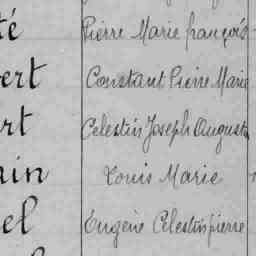 té Pierre Marie françois
ert Constant Pierre Marie
rt Celestin Joseph Auguste
ain Louis Marie
el Eugène Célestin pierre